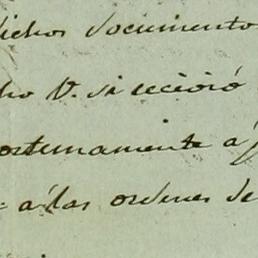 dichos documentos
ho V. si
ortunamente a
= a las ordenes de